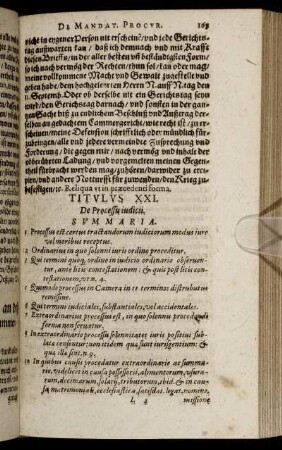 DE MANDAT. PROCVR. 163
richt in eygener Person nit erscheine/ vnd jede Gerichts-
tag außwarten kan/ daß ich demnach vnd mit Krafft
diesen Brieffs/ in der aller besten vñ beständigsten Form/
sich nach vermög der Rechten/ thun sol/ kan oder mag/
meine vollkommene Macht vnd Gewalt zugestellt vnd
geben habe/ dem hochgelerten Herrn N. auff N. tag den
11. Septemb. Oder ob derselbe nit ein Gerichtstag seyn
vnd/ den Gerichtstag darnach/ vnd sonsten in der gan-
tzen Sache biß zu endtlichem Beschluß vnd Außtrag der-
selben an gedachtem Cammergericht/ wie recht ist/ zu er-
scheinen/ meine Defension schrifftlich oder mündlich für-
zubringen/ alle vnd jedere verneinte Zusprechung vnd
Forderung/ die gegen mir/ nach vermög vnd Inhalt der
obberührten Ladung/ vnd vorgemelten meinen Gegen-
theil fürbracht werden mag/ zuhören/ darwider zu
vnd andere Notturfft für zuwenden/ den Krieg zu be-
festigen/ etc. Reliqua vt in præcedenti forma.
TITVLVS XXI.
De Processu iudicij.
SVMMARIA.
1 Processus est certus tractandorum iudiciorum modus iure
vel moribus receptus.
2 Ordinarius in quo solenni iuris ordine proceditur.
3 Qui termini quoq, ordine in iudicio ordinario obseruen-
tur, ante litis contestationem: & quis post litis con-
testationem, vers. 4.
5 Quomodo processus in Camera in te terminos distributus
remissiue.
6 Qui termini iudiciales, substantiales, vel accidentales.
7 Extraordinarius processus est, in quo solennis procedendi
forma non seruatur.
8 In extraordinario processu solennitates iuris positiui subla-
ta censentur: non itidem quæ sunt iuris gentium: &
quæ illa sint. n. 9.
10 In quibus causis procedatur extraordinarie ac summa-
rie, videlicet in causa possessorij, alimentorum, vsura-
rum, decimarum, salarij, tributorum, ibid. & in cau-
sa matrimoniali, ecclesiastica, satisdat. legat. nomine,
L 4 missione